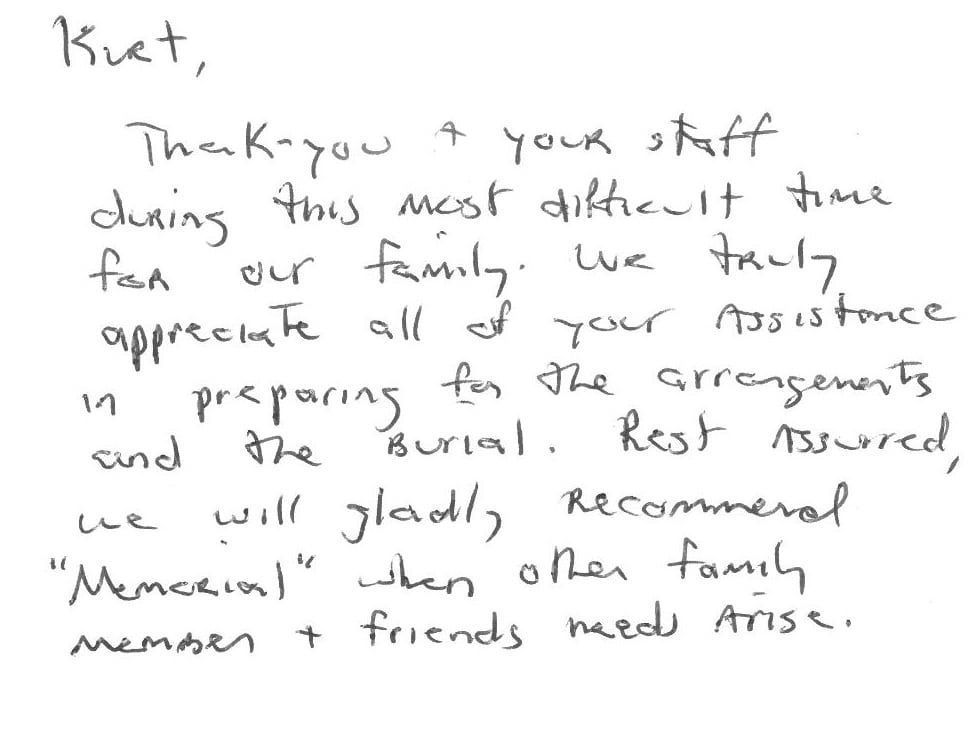 Kurt,
Thank-you + your staff
during this most difficult time
for our family. We truly
appreciate all of your Assistance
in preparing for the arrangements
and the Burial. Rest Assurred,
we will gladly Recommend
"Memorial" when other family
member + friends needs Arise.